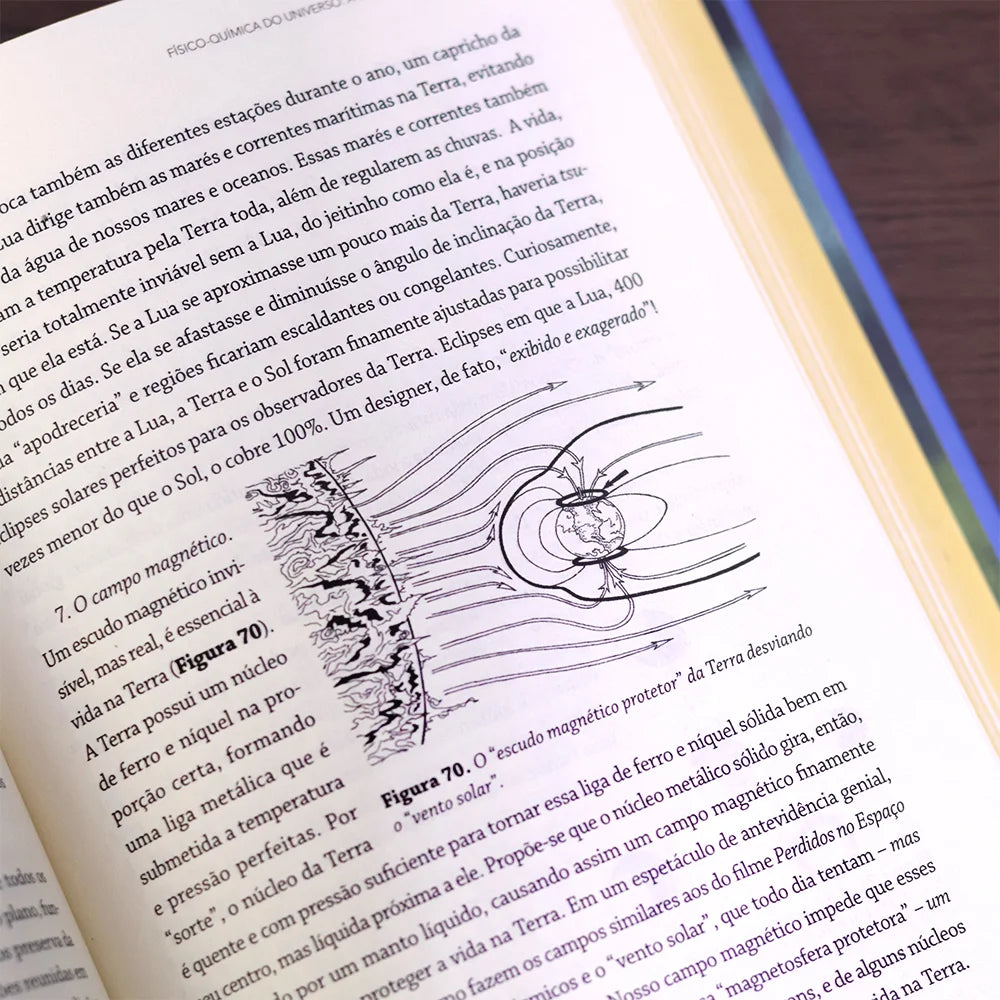 FÍSICO-QUÍMICA DO UNIVERSO:
também as diferentes estações durante o ano, um capricho da
Lua dirige também as marés e correntes marítimas na Terra, evitando
da água de nossos mares e oceanos. Essas marés e correntes também
a temperatura pela Terra toda, além de regularem as chuvas. A vida,
seria totalmente inviável sem a Lua, do jeitinho como ela é, e na posição
que ela está. Se a Lua se aproximasse um pouco mais da Terra, haveria tsu-
os dias. Se ela se afastasse e diminuísse o ângulo de inclinação da Terra,
“apodreceria” e regiões ficariam escaldantes ou congelantes. Curiosamente,
distâncias entre a Lua, a Terra e o Sol foram finamente ajustadas para possibilitar
eclipses solares perfeitos para os observadores da Terra. Eclipses em que a Lua, 400
vezes menor do que o Sol, o cobre 100%. Um designer, de fato, “exibido e exagerado”!
7. O campo magnético.
Um escudo magnético invi-
sível, mas real, é essencial à
vida na Terra (Figura 70).
A Terra possui um núcleo
de ferro e níquel na pro-
porção certa, formando
uma liga metálica que é
submetida a temperatura
e pressão perfeitas. Por
“sorte”, o núcleo da Terra
Figura 70. O “escudo magnético protetor” da Terra desviando
o “vento solar”.
é quente e com pressão suficiente para tornar essa liga de ferro e níquel sólida bem em
seu centro, mas líquida próxima a ele. Propõe-se que o núcleo metálico sólido gira, então,
por um manto líquido, causando assim um campo magnético finamente
proteger a vida na Terra. Em um espetáculo de antevidência genial,
fazem os campos similares aos do filme Perdidos no Espaço
e o “vento solar”, que todo dia tentam – mas
Nosso campo magnético impede que esses
“magnetosfera protetora” – um
e de alguns núcleos
vida na Terra.
todos os
plano, fun-
preserva da
reunidas em